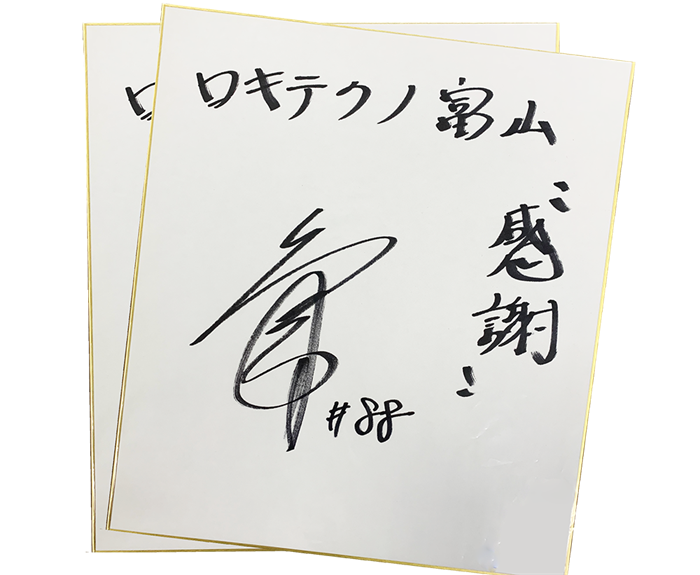 ロキテクノ富山
"感謝"
#88
ロ